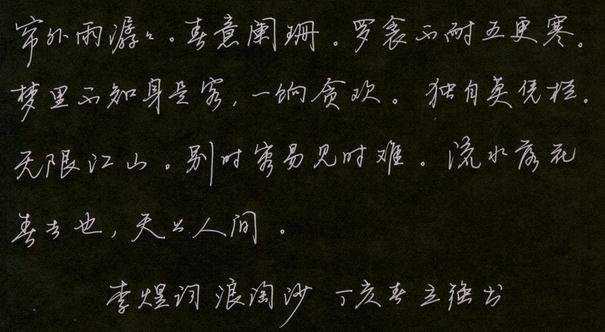 帘外雨潺々。春意阑珊。罗衾不耐五更寒。
梦里不知身是客，一饷贪欢。独自莫凭栏。
无限江山。别时容易见时难。流水落花
春去也，天上人间。
李煜词 浪淘沙 丁亥春 立强书